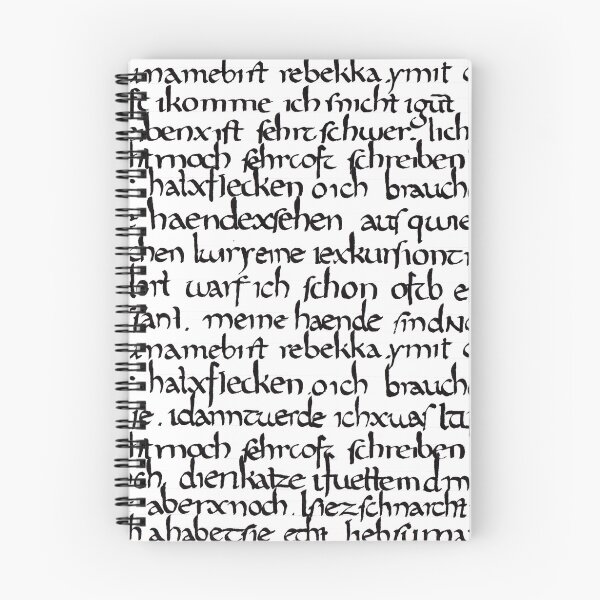 namebiſt rebekka.ymit
ſt ikomme ich ſnicht igūt
benxiſt ſehrtſchwer. lich
htmoch ſehrcoft ſchreiben
halxflecken oich brauche
haendexſehen auſ qwie
chen kuryeine iexkurſiont
warf ich ſchon oftb e
ſanl. meine haende ſindno
namebiſt rebekka.ymit
halxflecken.oich brauche
ſe. idanntwerde ichxwaſ
htmoch ſehrcoft ſchreiben
ch dienkatze ifuettemdm
aberxnoch. lſiezſchnarcht